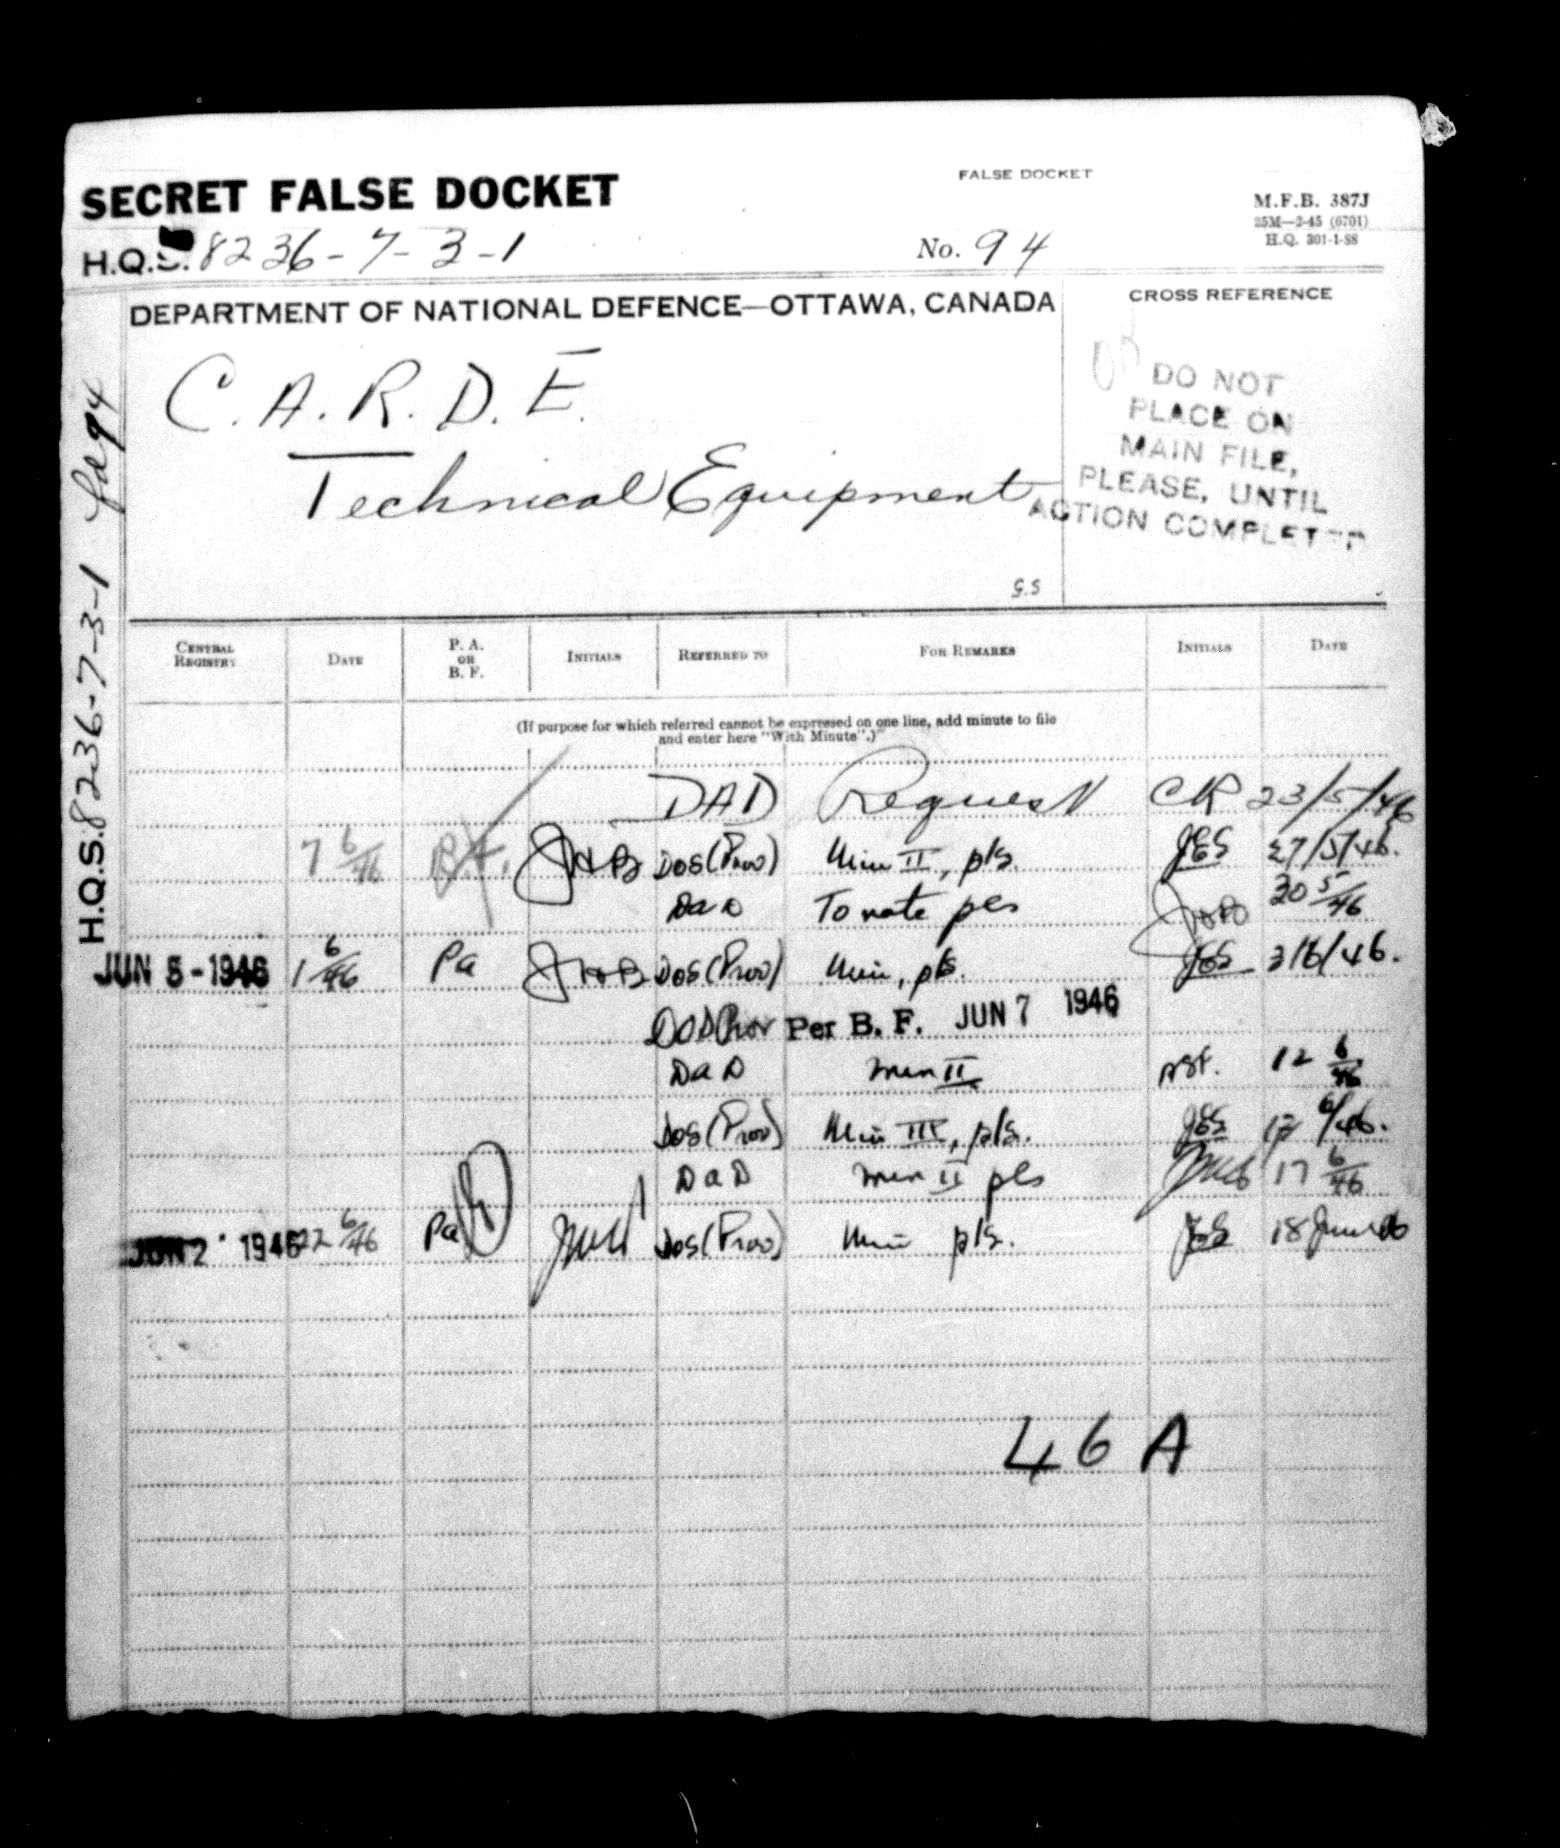 FALSE DOCKET
SECRET FALSE DOCKET
M.F.B. 387J
25M—2-45 (6701)
H.Q. 301-1-88
H.Q.S. 8236-7-3-1 No. 94
DEPARTMENT OF NATIONAL DEFENCE—OTTAWA, CANADA
CROSS REFERENCE
C.A.R.D.E.
Technical Equipment
DO NOT
PLACE ON
MAIN FILE,
PLEASE, UNTIL
ACTION COMPLETED
H.Q.S. 8236-7-3-1
CENTRAL REGISTRY DATE P. A. OR B. F. INITIALS REFERRED TO FOR REMARKS INITIALS DATE
(If purpose for which referred cannot be expressed on one line, add minute to file
and enter here "With Minute".)
DAD Request CR 23/5/46
7 6/46 B.F. JHB DOS(Prov) Min II, pls. JES 27/5/46.
DaD To note pls 30 5/46
JUN 5-1946 1 6/46 Pa JHB DOS(Prov) Min, pls. JES 3/6/46.
DOS Prov Per B. F. JUN 7 1946
DaD min II 12 6/46
DOS(Prov) Min III, pls. JES 6/46.
DaD min II pls 17 6/46
JUN 2 1946 22 6/46 Pa DOS(Prov) Min pls. JES 18 June 46
46 A